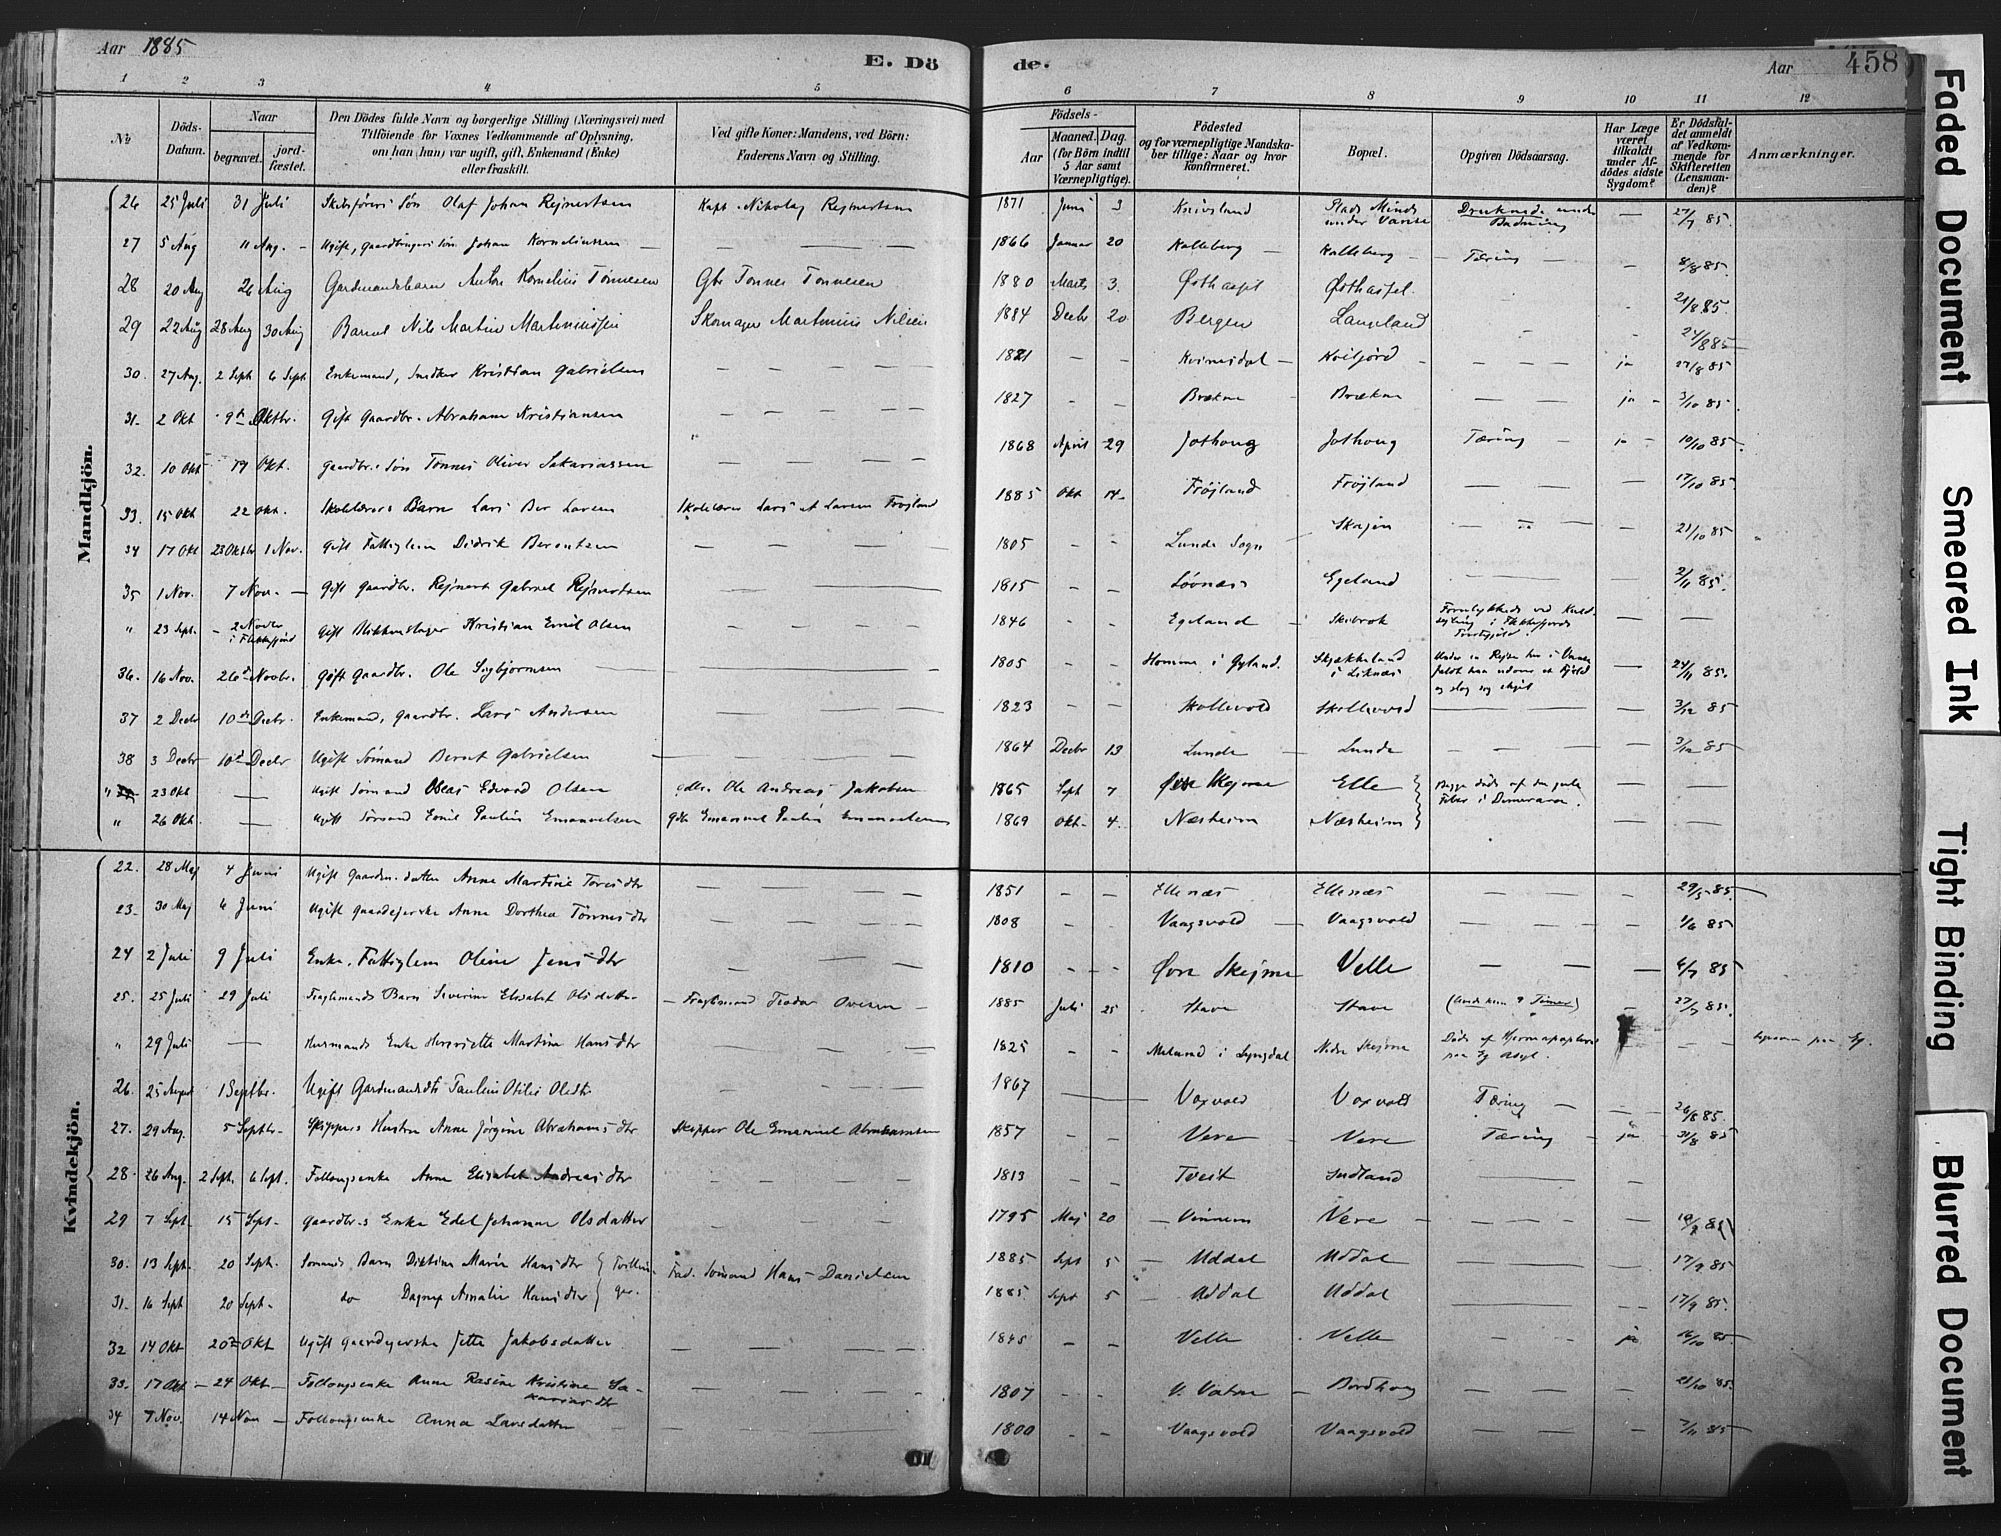 Aar 1885
E. Dö
de.
Aar
458
1 2 3 4 5
6 7 8 9 10 11 12
№
Döds-Datum.
Naar
begravet.
jordfæstet.
Den Dödes fulde Navn og borgerlige Stilling (Næringsvei) med
Tilföiende for Voxnes Vedkommende af Oplysning,
om han (hun) var ugift, gift, Enkemand (Enke)
eller fraskilt.
Ved gifte Koner: Mandens, ved Börn:
Faderens Navn og Stilling.
Födsels-
Aar
Maaned. Dag.
(for Börn indtil
5 Aar samt
Værnepligtige).
Födested
og for værnepligtige Mandska-
ber tillige: Naar og hvor
konfirmeret.
Bopæl.
Opgiven Dödsaarsag.
Har Læge
været
tilkaldt
under Af-
dödes sidste
Sygdom?
Er Dödsfal-
det anmeldt
af Vedkom-
mende for
Skifteretten
(Lensman-
den)?
Anmærkninger.
Mandkjön.
26 25 Juli 31 Juli Skibsförers Sön Olaf Johan Rejnertsen Kapt. Nikolay Rejnertsen 1871 Juni 3 under Vanse Druknede under Badning 27/7 85
27 5 Aug 11 Aug. Ugift, gaardbrugers sön Johan Korneliussen 1866 Januar 20 Kalleberg Kalleberg Tæring 8/8 85.
28 20 Aug 26 Aug Gardmandsbarn Anton Kornelius Tönnesen Gbr Tönnes Tönnesen 1880 Marts 3. Østhassel Østhassel. 21/8 85.
29 22 Aug 28 Aug 30 Aug Barnet Nils Martin Martiniussen Skomager Martinius Nilsen 1884 Decbr 20 Bergen Langeland 24/8 85
30. 27 Aug. 2 Sept 6 Sept Enkemand, Snedker Kristian Gabrielsen 1821 Kvinesdal ja 27/8 85
31. 2 Okt 9de Oktbr. Gift Gaardbr. Abraham Kristiansen 1827 Brækne Brækne ja 3/10 85
32. 10 Okt 19 Okt. gaardbr.s Sön Tönnes Oliver Sakariassen 1868 April 29 Jothoug Jothoug Tæring ja 10/10 85
33. 15 Okt 22 Okt. Skolelærers Barn Lars Ber Larsen Skolelærer Lars A Larsen Fröjland 1885 Okt 14 Fröjland Fröjland 17/10 85
34 17 Okt 23 Oktbr 1 Nov. Gift Fattiglem Didrik Berentsen 1805 Lunde Sogn 21/10 85
35 1 Nov. 7 Nov. Gift gaardbr. Rejnert Gabriel Rejnertsen 1815 Lövnæs Egeland 2/11 85.
" 23 Sept. 2 Novbr i Flekkefjord Gift Blikkenslager Kristian Emil Olsen 1846 Egeland Skibrok Forulykkede ved i Flekkefjords
36. 16 Nov. 26de Novbr. Gift gaardbr. Ole Sigbjörnsen 1805 Homme i Gyland. i Liknæs og slog sig ihjel 24/11 85.
37 2 Decbr 10de Decbr. Enkemand, gaardbr. Lars Andersen 1823 Skollevold Skollevold 3/12 85
38 3 Decbr 10de Decbr Ugift Sömand Bernt Gabrielsen 1864 Decbr 13 Lunde Lunde 3/12 85
" 23 Okt Ugift Sömand Oleas Edvard Olsen gdbr. Ole Andreas Jakobsen 1865 Sept 7 Øvre Skejme Elle Begge döde af den gule Feber i Demerara.
" 26 Okt. Ugift Sömand Emil Paulin Emanuelsen gdbr Emanuel Paulin Emanuelsen 1869 Okt. 4. Næsheim Næsheim
Kvindekjön.
22. 28 Maj 4 Juni Ugift Gaardm. datter Anne Martine Toresdtr 1851 Ellenæs Ellenæs 29/5 85.
23. 30 Maj 6 Juni Ugift gaardejerske Anna Dorthea Tönnesdtr 1808 Vaagsvold Vaagsvold 1/6 85
24 2 Juli 9 Juli Enke. Fattiglem Oline Jensdtr 1810 Øvre Skejme Velle 6/7 85
25. 25 Juli 29 Juli Fragtmands Barn Severine Elisabet Olsdatter Fragtmand Teodor Ovesen 1885 Juli 25 Stave Stave (levede kun 9 Timer) 27/7 85.
" 29 Juli Husmands Enke Henriette Martine Hansdtr 1825 Meland i Lyngdal Nedre Skejme Döde af Hjerneapopleksi paa Eg Asyl.
26. 25 August 1 Septbr. Ugift Gardmandsdtr Pauline Otilie Olsdtr 1867 Voxvold Voxvold Tæring 26/8 85.
27. 29 Aug. 5 Septbr. Skippers Hustru Anne Jörgine Abrahamsdtr Skipper Ole Emanuel Abrahamsen 1857 Vere Vere Tæring ja 31/8 85
28. 26 Aug. 2 Sept. 6 Sept. Follougsenke Anne Elisabet Andreasdtr 1813 Tveit Indland
29 7 Sept. 15 Sept. gaardbr.s Enke Edel Johanne Olsdatter 1795 Maj 20 Vinnem Vere 10/9 85
30. 13 Sept. 20 Sept. Sömands Barn Diktine Marie Hansdtr } Tvillin- Fad. Sömand Hans Danielsen 1885 Sept 5 Uddal Uddal 17/9 85
31. 16 Sept 20 Sept. do Dagny Amalie Hansdtr } ger. 1885 Sept 5 Uddal Uddal 17/9 85.
32 14 Okt 20de Okt Ugift gaardejerske Jette Jakobsdatter 1845 Velle Velle ja 16/10 85
33. 17 Okt 24 Okt Follougsenke Anne Rasine Kristine Sa-
kariasdtr 1807 V. Vatne Bordhoug 21/10 85.
34 7 Nov. 14 Nov Follougsenke Anna Larsdatter 1800 Vaagsvold Vaagsvold 7/11 85
Faded Document
Smeared Ink
Tight Binding
Blurred Document